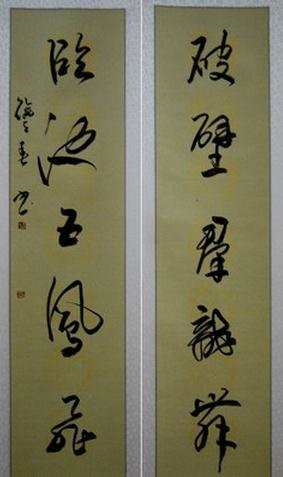 破壁群龍舞
臨池五鳳飛